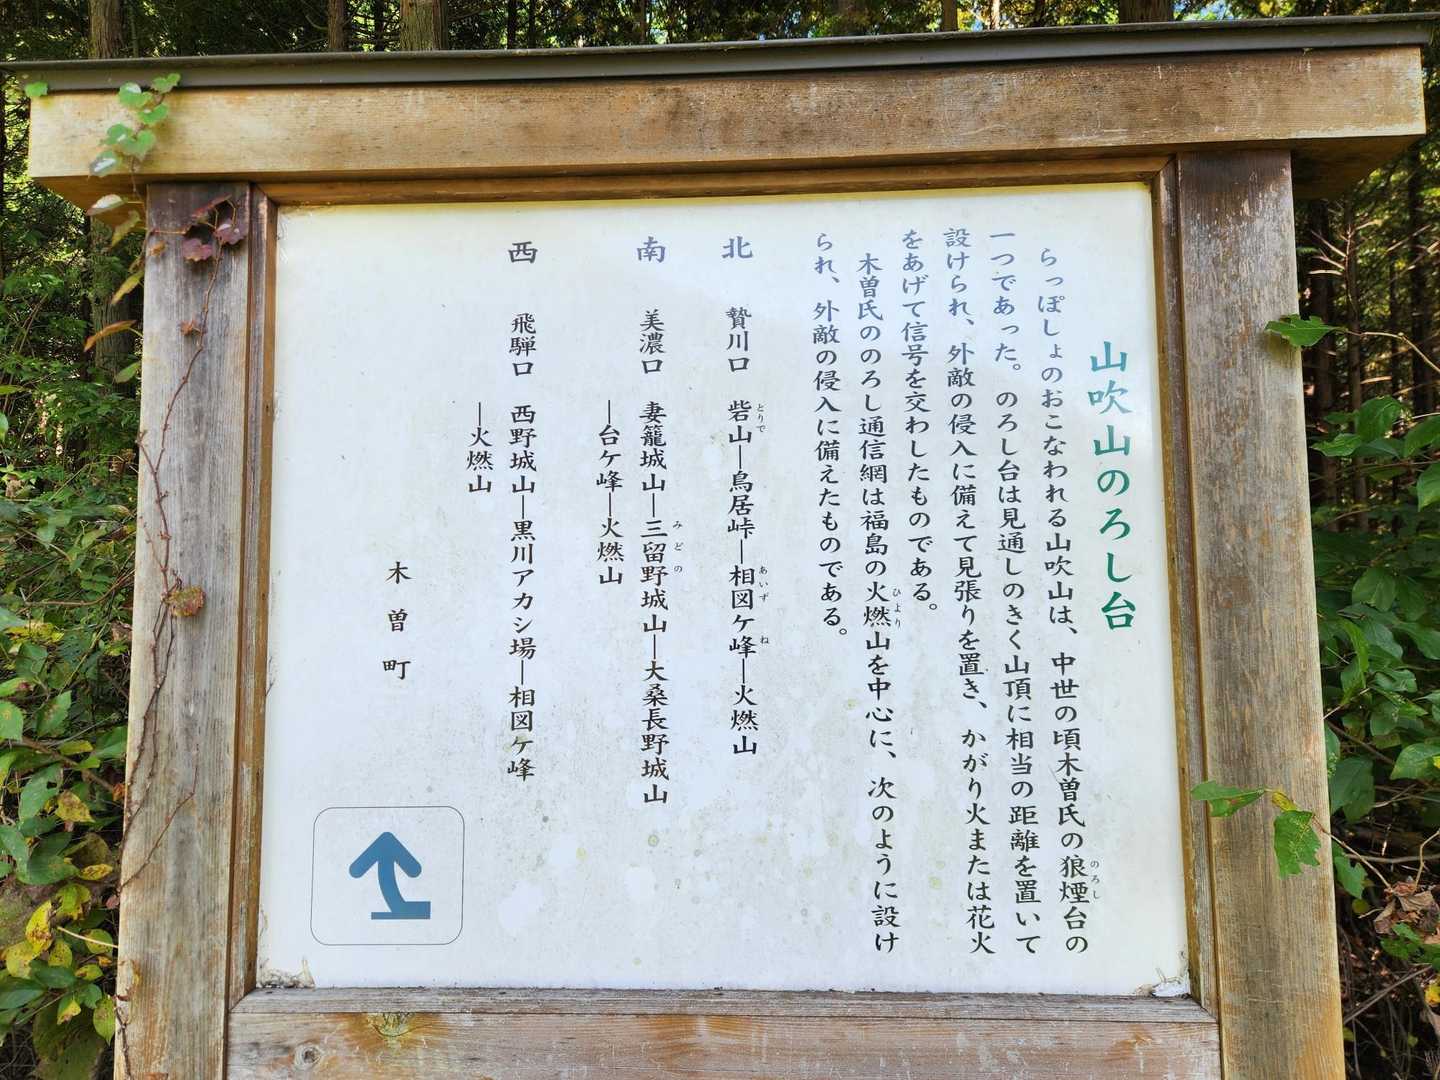 山吹山のろし台
らっぽしょのおこなわれる山吹山は、中世の頃木曽氏の狼煙台の
のろし
一つであった。のろし台は見通しのきく山頂に相当の距離を置いて
設けられ、外敵の侵入に備えて見張りを置き、かがり火または花火
をあげて信号を交わしたものである。
木曽氏ののろし通信網は福島の火燃山を中心に、次のように設け
ひより
られ、外敵の侵入に備えたものである。
北 贄川口 砦山―鳥居峠―相図ケ峰―火燃山
とりで あいず ね
南 美濃口 妻籠城山―三留野城山―大桑長野城山
みどの
―台ケ峰―火燃山
西 飛騨口 西野城山―黒川アカシ場―相図ケ峰
―火燃山
木曽町